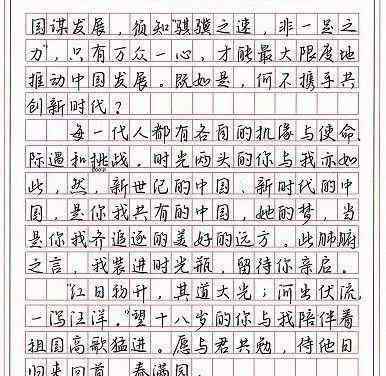 国谋发展，须知"骐骥之速，非一足之
力"，只有万众一心，才能最大限度地
推动中国发展。既如是，何不携手共
创新时代？
每一代人都有各自的机缘与使命，
际遇和挑战。时光两头的你与我亦如
此，然，新世纪的中国、新时代的中
国，是你我共有的中国，她的梦，当
是你我齐追逐的美好的远方。此肺腑
之言，我装进时光瓶，留待你亲启。
"红日初升，其道大光；河出伏流，
一泻汪洋。"望十八岁的你与我陪伴着
祖国高歌猛进。愿与君共勉，待他日
归来回首，春满国